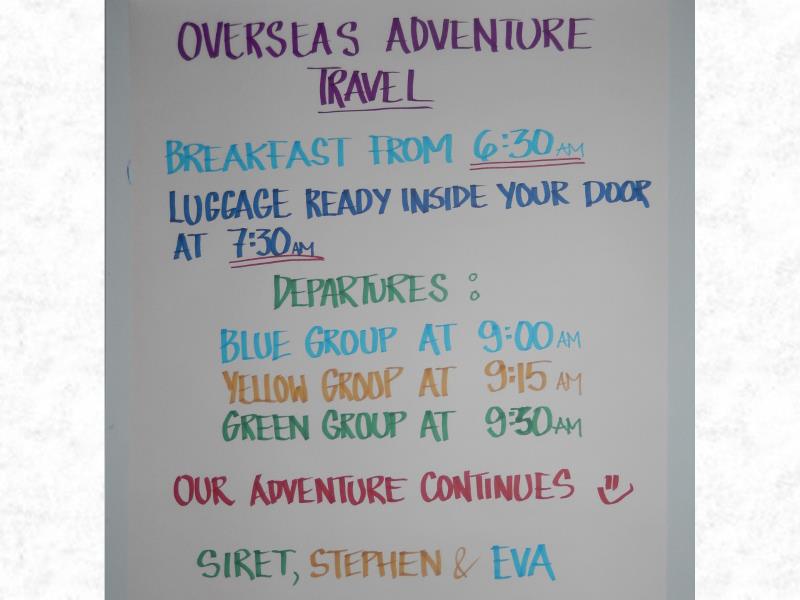 OVERSEAS ADVENTURE
TRAVEL
BREAKFAST FROM 6:30 AM
LUGGAGE READY INSIDE YOUR DOOR
AT 7:30 AM
DEPARTURES :
BLUE GROUP AT 9:00 AM
YELLOW GROUP AT 9:15 AM
GREEN GROUP AT 9:30 AM
OUR ADVENTURE CONTINUES
SIRET, STEPHEN & EVA